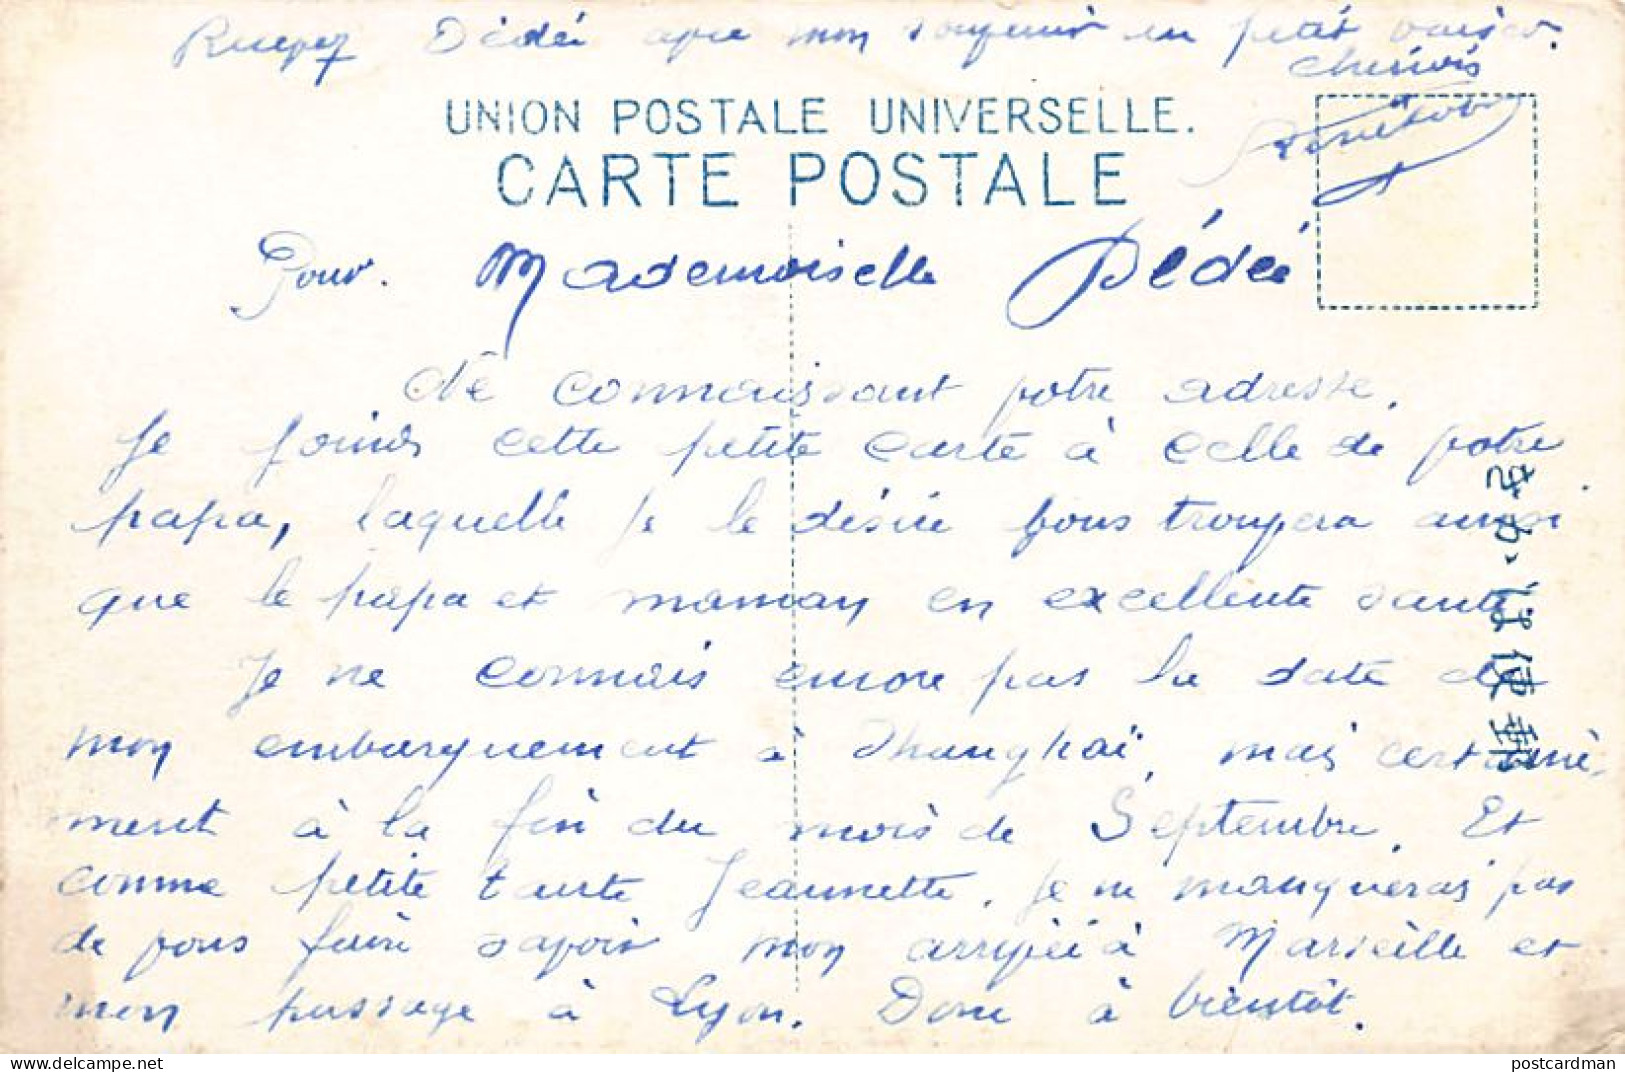 Recevez Dédée avec mon souvenir un petit baiser
chinois
UNION POSTALE UNIVERSELLE.
CARTE POSTALE
Pour. Mademoiselle Dédée
Ne connaissant votre adresse,
Je joins cette petite carte à celle de votre
papa, laquelle je le désire vous trouvera ainsi
que le papa et maman en excellente santé.
Je ne connais encore pas la date de
mon embarquement à Shanghaï, mais certaine-
ment à la fin du mois de Septembre. Et
comme petite tante Jeannette, je ne manquerai pas
de vous faire savoir mon arrivée à Marseille et
mon passage à Lyon. Donc à bientôt.
postcardman